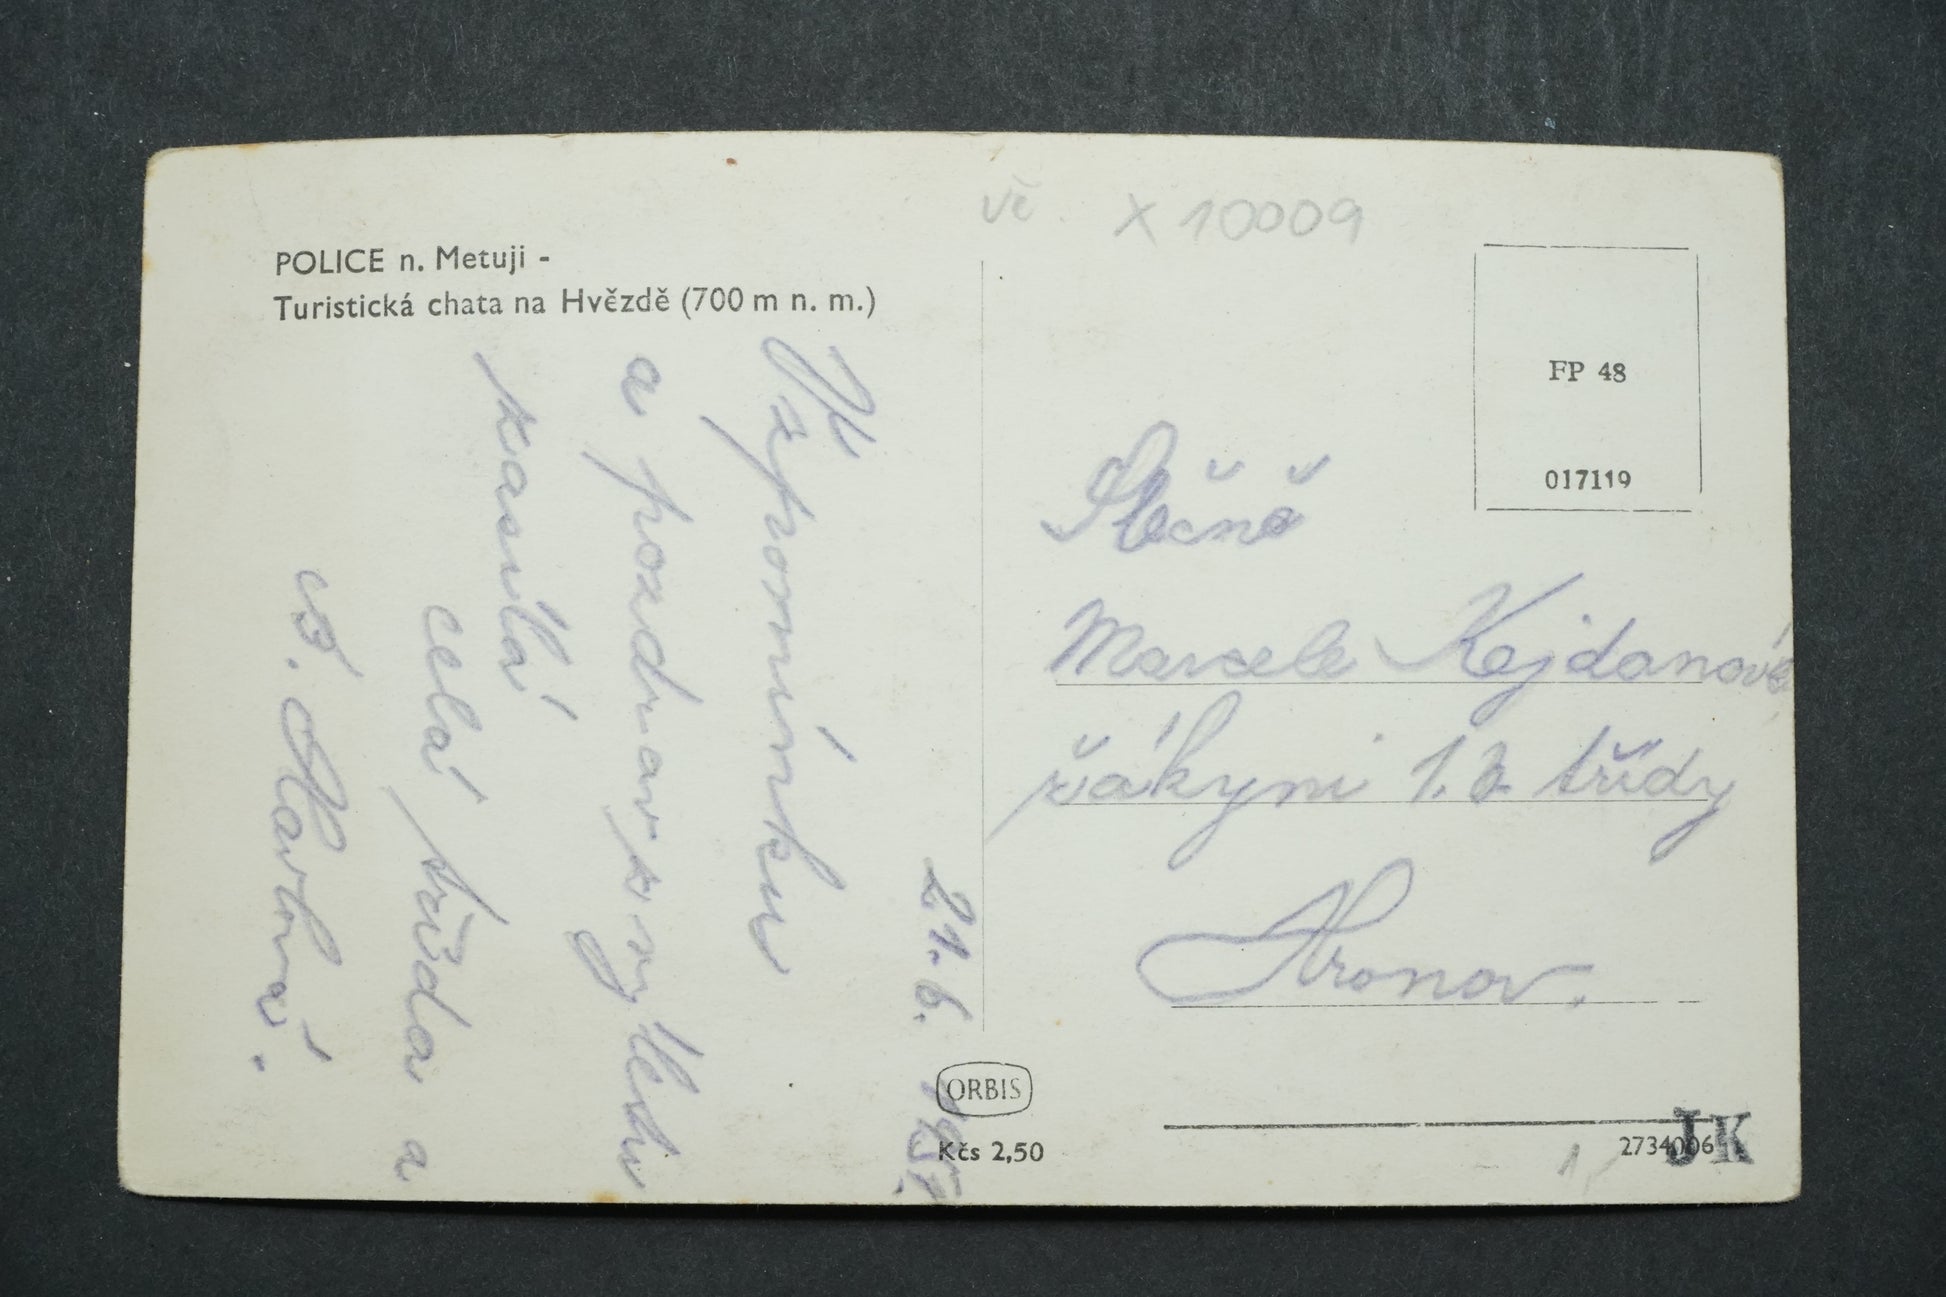 POLICE n. Metuji -
Turistická chata na Hvězdě (700 m n. m.)
Vzpomínku
a pozdrav z výletu
zasílá
celá třída a
Hronov.
21. 6.
Vč. X 10009
FP 48
017119
Slečně
Marcele Kejdanové
žákyni 1. B. třídy
ORBIS
Kčs 2,50
2734006
JK
1,-